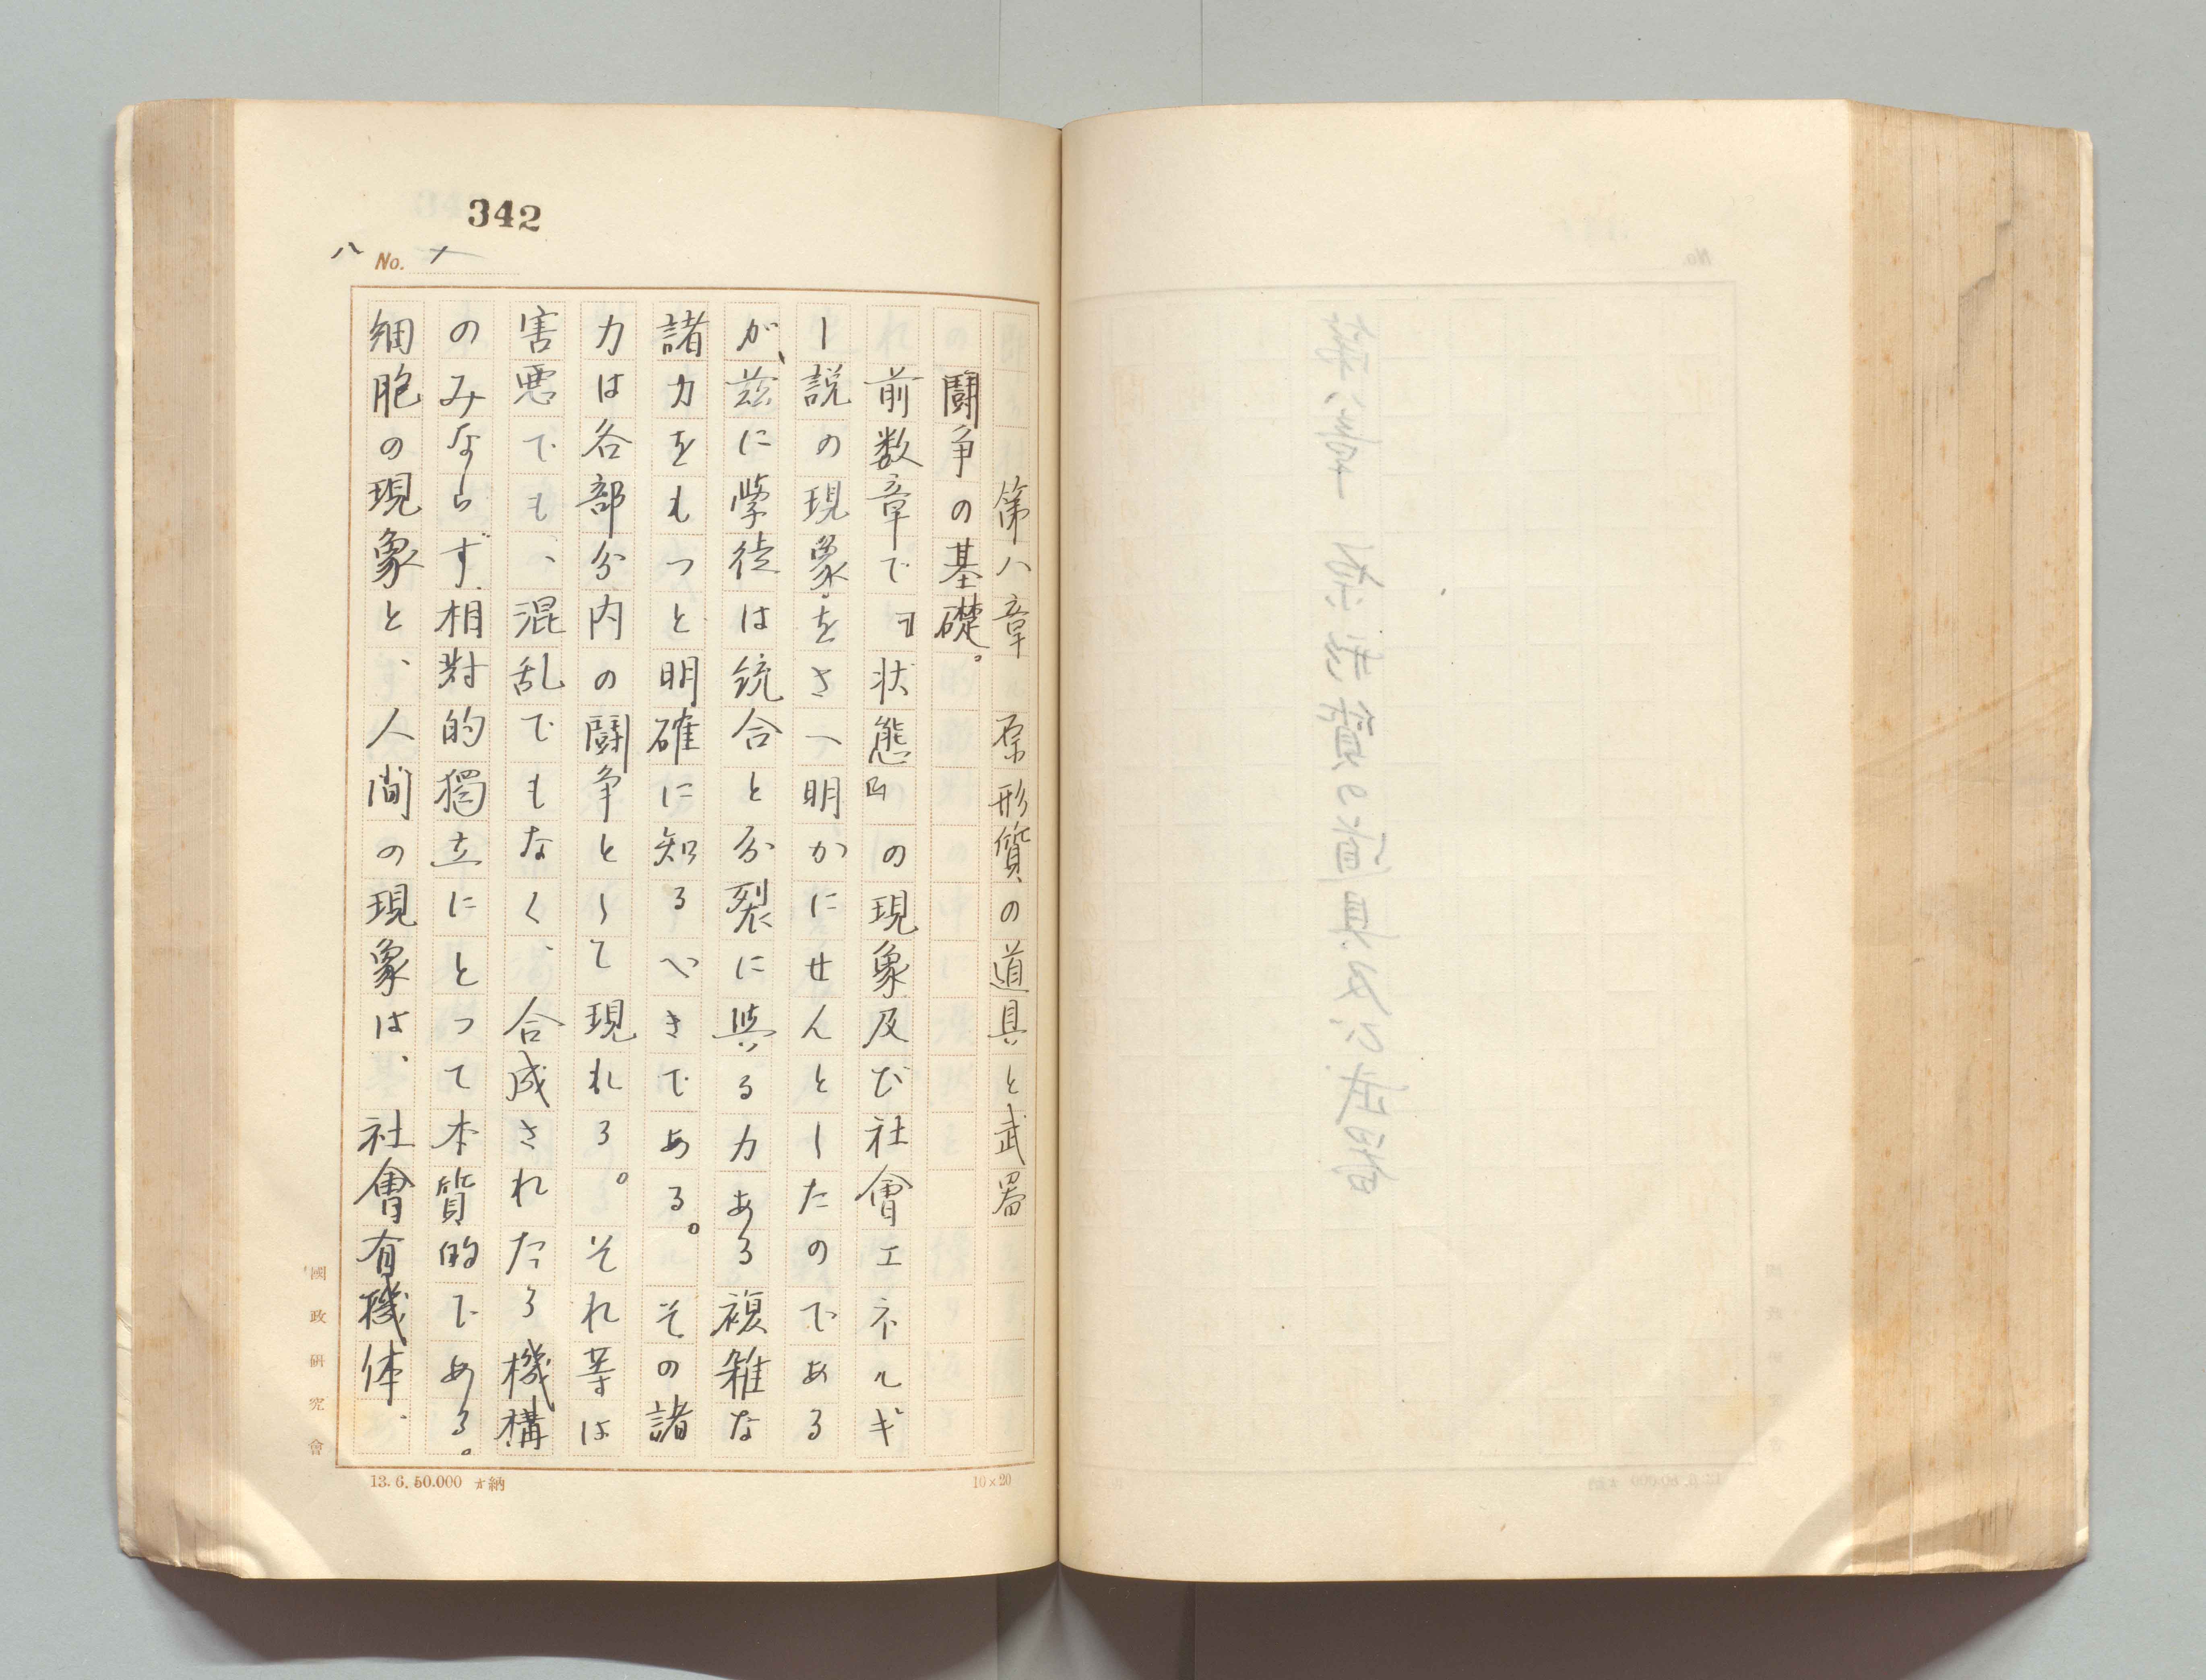 342
八 No.
第八章 原形質の道具と武器
闘争の基礎。
前数章で『状態』の現象及び社會エネルギ
ー説の現象。をさへ明かにせんとしたのである
が、茲に学徒は統合と分裂に與る力ある複雑な
諸力をもつと明確に知るべきである。その諸
力は各部分内の闘争として現れる。それ等は
害悪でも、混乱でもなく、合成されたる機構
のみならず相對的獨立にとって本質的である。
細胞の現象と、人間の現象は、社會有機体、
國政研究會
13.6.50.000 納
10×20